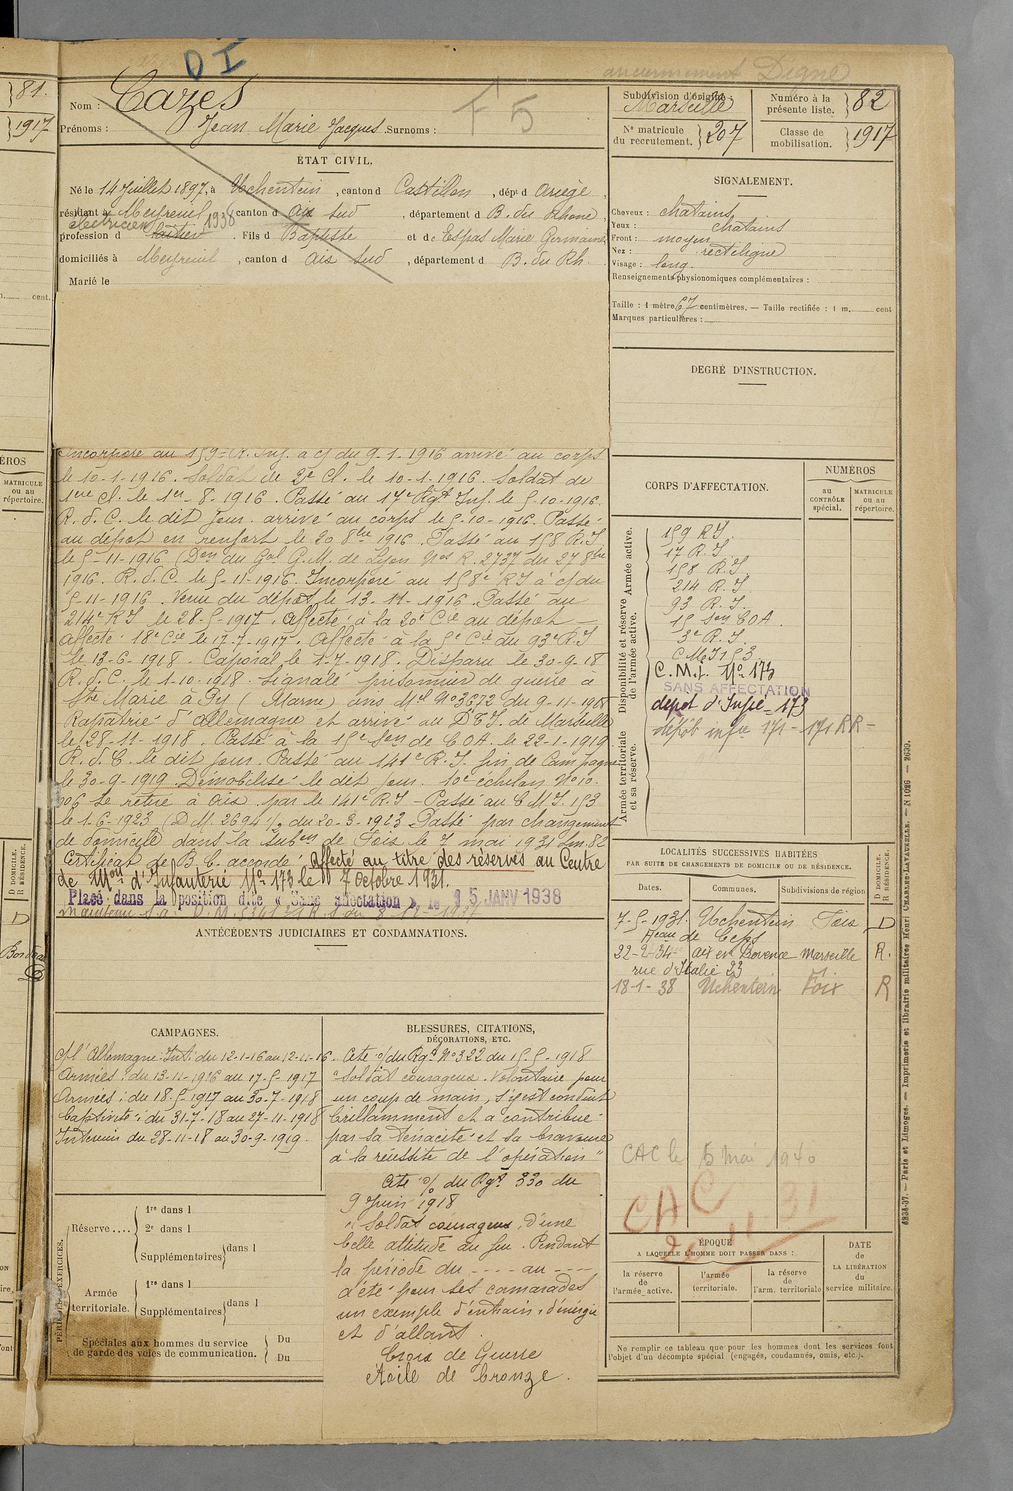 81.
1917
D I
anciennement Digne
F 5
Nom : Cazes
Prénoms : Jean Marie Jacques. Surnoms :
ÉTAT CIVIL.
Né le 14 Juillet 1897, à Uchentein, canton d Castillon, dépt d Ariège,
résidant à Meyreuil 1938 canton d Aix sud, département d B. du Rhône,
électricien
profession d laitier. Fils d Baptiste et de Espas Marie Germaine
domiciliés à Meyreuil, canton d Aix sud, département d B. du Rh.
Marié le
Subdivision d'origine :
Marseille
Numéro à la présente liste. 82
N° matricule du recrutement. 207
Classe de mobilisation. 1917
SIGNALEMENT.
Cheveux : chatains
Yeux : chatains
Front : moyen
Nez : rectiligne
Visage : long
Renseignements physionomiques complémentaires :
Taille : 1 mètre 67 centimètres. — Taille rectifiée : 1 m. cent
Marques particulières :
DEGRÉ D'INSTRUCTION.
Incorporé au 159e R. Inf. à c/ du 9-1-1916 arrivé au corps
le 10-1-1916. Soldat de 2e Cl. le 10-1-1916. Soldat de
1ere Cl. le 1er-8-1916. Passé au 17e Rgt Inf. le 5-10-1916.
R.d.C. le dit jour. arrivé au corps le 5-10-1916. Passé
au dépot en renfort le 20 8bre 1916. Passé au 158 R.I.
le 5-11-1916 (Don du Gal G.M. de Lyon Nos R. 2737 du 27 8bre
1916. R.d.C. le 5-11-1916. Incorporé au 158e RI à c/ du
5-11-1916. Venu du dépot le 13-11-1916. Passé au
214e RI le 28-5-1917. Affecté à la 20e Cie au dépot —
affecté 18e Cie le 17-7-1917. Affecté à la 5e Cie au 93e R.I
le 13-6-1918. Caporal le 1-7-1918. Disparu le 30-9-18
R.d.C. le 1-10-1918. Signalé prisonnier de guerre à
Ste Marie à Py (Marne) avis Mel N° 3672 du 9-11-1918
Rapatrié d'allemagne et arrivé au D.E.I. de Marseille
le 28-11-1918. Passé à la 15e Son de COA. le 22-1-1919
R.d.C. le dit jour. Passé au 141e R.I. fin de Campagne
le 30-9-1919. Démobilisé le dit jour. 10e échelon N° 10.
se retire à Aix par le 141e R.I — Passé au C M I. 153
le 1-6-1923 (D.M. 2694 du 20-3-1923 Passé par changement
de domicile dans la Subon de Foix le 7 mai 1931
Certificat de B.C. accordé. Affecté au titre des réserves au Centre
de Mon d'Infanterie N° 173 le 7 octobre 1931.
Placé dans la position dite « Sans affectation » le 15 JANV 1938
ANTÉCÉDENTS JUDICIAIRES ET CONDAMNATIONS.
CORPS D'AFFECTATION.
NUMÉROS
au CONTRÔLE spécial.
MATRICULE ou au répertoire.
Armée active.
Disponibilité et réserve de l'armée active.
Armée territoriale et sa réserve.
159 R I
17 R. I.
158 R. I.
214 R. I.
93 R. I.
15 Son COA.
3e R. I.
C M I 153
C. M. I. N° 173
SANS AFFECTATION
dépot d'Infie 173
dépôt infie 171 — 171 RR —
LOCALITÉS SUCCESSIVES HABITÉES
PAR SUITE DE CHANGEMENTS DE DOMICILE OU DE RÉSIDENCE.
Dates. Communes. Subdivisions de région
D DOMICILE. R RÉSIDENCE.
7-5-1931. Uchentein Foix D
Heau de Ceps
22-2-34 aix en Provence Marseille R.
rue d'Italie 23
18-1-38 Uchentein Foix R
CAC le 5 mai 1940
CAC
CAMPAGNES.
C/ l'Allemagne : Int. du 12-1-16 au 12-11-16.
Armées : du 13-11-1916 au 17-5-1917
Armées : du 18-5-1917 au 30-7-1918
Captivité : du 31-7-18 au 27-11-1918
Intérieur du 28-11-18 au 30-9-1919.
BLESSURES, CITATIONS,
DÉCORATIONS, ETC.
Cité o/ du Rgt N° 322 du 15-5-1918
"Soldat courageux. Volontaire pour
un coup de main, s'y est conduit
brillamment et a contribué
par sa tenacité et sa bravoure
à la réussite de l'opération"
Cité o/ du Rgt 330 du
9 Juin 1918
"Soldat courageux, d'une
belle attitude au feu. Pendant
la période du ---- au ----
a été pour ses camarades
un exemple d'entrain, d'énergie
et d'allant.
Croix de Guerre
Etoile de bronze.
PÉRIODES D'EXERCICES.
Réserve....
1re dans l
2e dans l
Supplémentaires dans l
Armée territoriale.
1re dans l
Supplémentaires dans l
Spéciales aux hommes du service
de garde des voies de communication.
Du
Du
ÉPOQUE
A LAQUELLE L'HOMME DOIT PASSER DANS :
la réserve de l'armée active.
l'armée territoriale.
la réserve de l'arm. territoriale
DATE de LA LIBÉRATION du service militaire.
Ne remplir ce tableau que pour les hommes dont les services font
l'objet d'un décompte spécial (engagés, condamnés, omis, etc.).
6834-37. — Paris et Limoges. — Imprimerie et librairie militaires Henri CHARLES-LAVAUZELLE. — N 1026 — 2639.